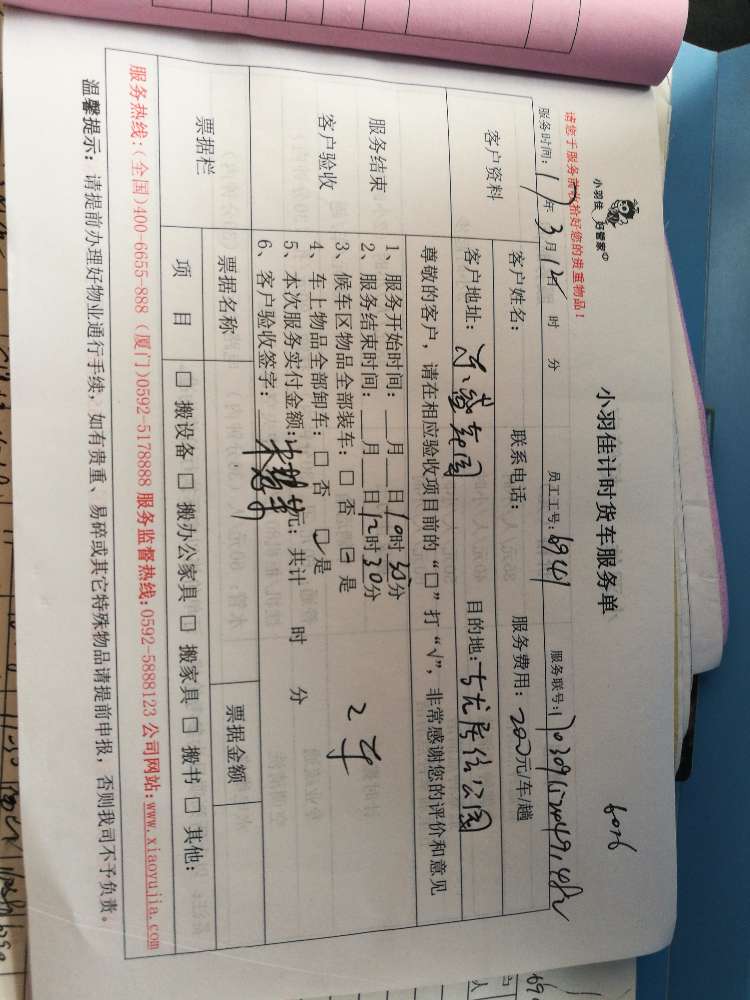 小羽佳 好管家
小羽佳计时货车服务单
6026
请您于服务前收拾好您的贵重物品！
服务时间：17年3月12日 时 分 员工工号：6941 服务联号：
客户资料
客户姓名： 联系电话： 服务费用：200元/车/趟
客户地址： 目的地：
服务结束
客户验收
尊敬的客户，请在相应验收项目前的“□”打“√”，非常感谢您的评价和意见
1、服务开始时间：__月__日10时30分
2、服务结束时间：__月__日12时30分
3、候车区物品全部装车：□ 否 ☑ 是
4、车上物品全部卸车：□ 否 ☑ 是
5、本次服务实付金额： 元；共计 时 分
6、客户验收签字：
2车
票据栏
票据名称 票据金额
项 目 □ 搬设备 □ 搬办公家具 □ 搬家具 □ 搬书 □ 其他：
服务热线：(全国)400-6655-888 (厦门)0592-5178888 服务监督热线：0592-5888123 公司网站：www.xiaoyujia.com
温馨提示：请提前办理好物业通行手续，如有贵重、易碎或其它特殊物品请提前申报，否则我司不予负责。